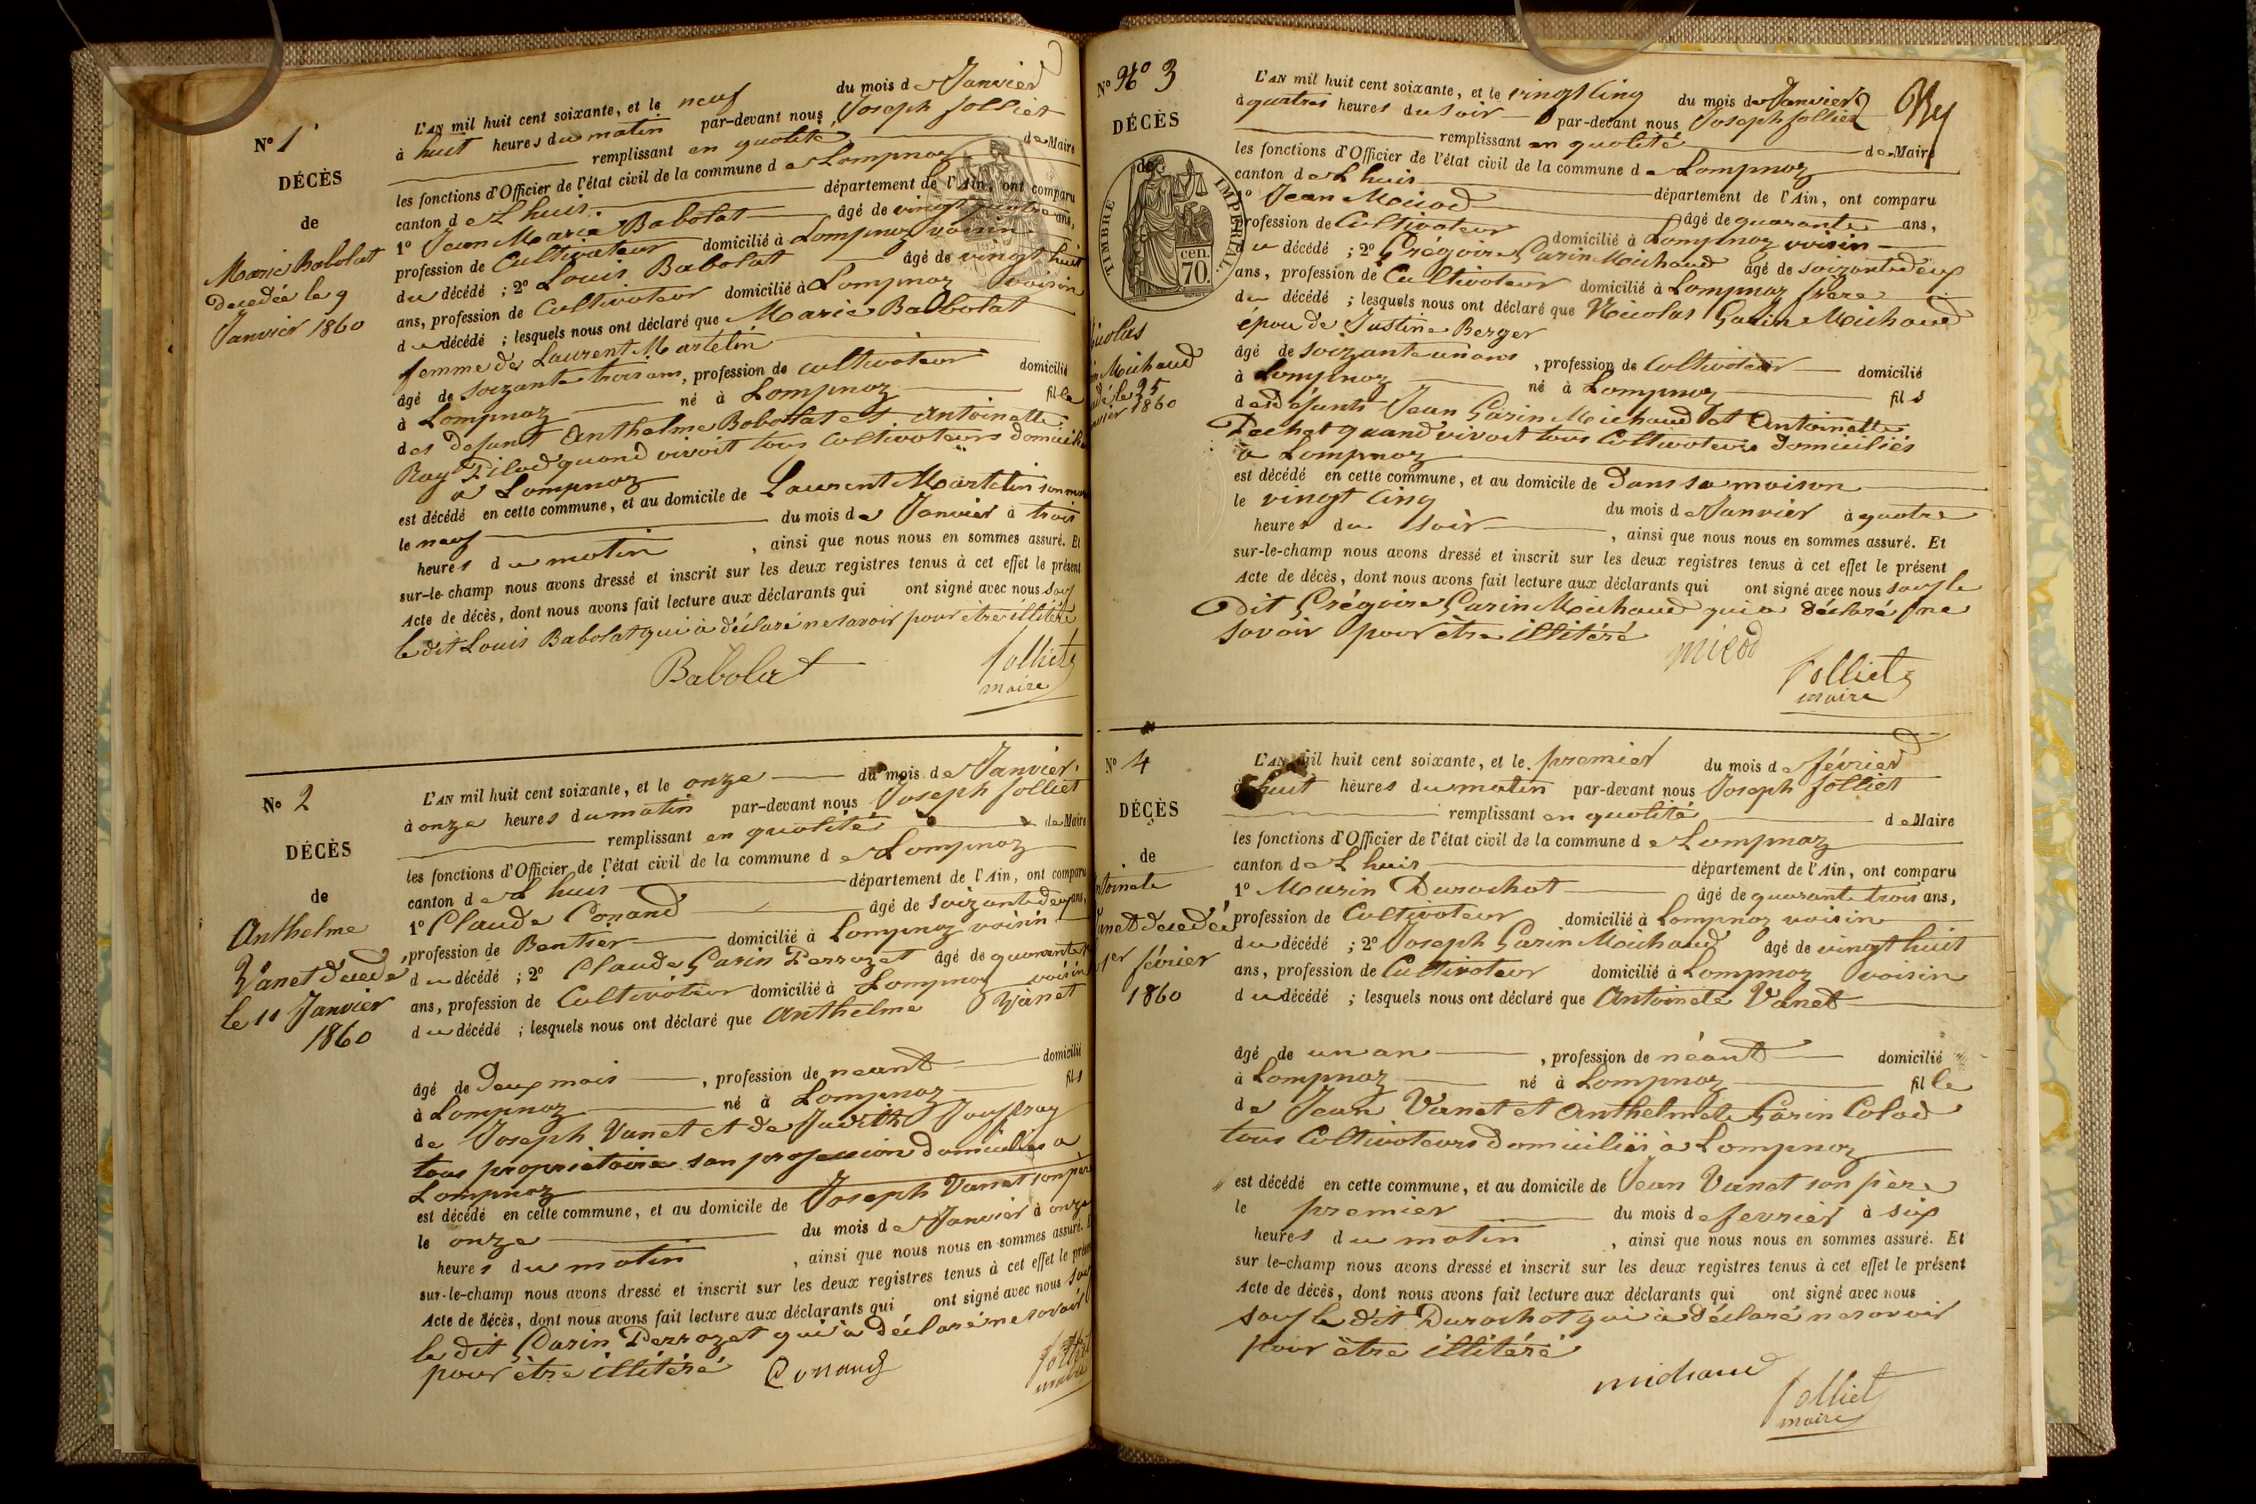 No 1
DÉCÈS
de
Marie Babolat
Décédée le 9
Janvier 1860
L'AN mil huit cent soixante, et le neuf du mois de Janvier
à huit heures du matin par-devant nous Joseph Jolliet
remplissant en qualité de Maire
les fonctions d'Officier de l'état civil de la commune de Lompnaz
canton de Lhuis département de l'Ain, ont comparu
1o Jean Marie Babolat âgé de vingt ans,
profession de Cultivateur domicilié à Lompnaz voisin
du décédé ; 2o Louis Babolat âgé de vingt huit
ans, profession de Cultivateur domicilié à Lompnaz voisin
du décédé ; lesquels nous ont déclaré que Marie Babolat
femme de Laurent Martelin
âgé de soixante trois ans, profession de cultivateur domicilié
à Lompnaz né à Lompnaz fille
des defunt Anthelme Babolat et Antoinette
quand vivoit tous Cultivateurs domicilié
a Lompnaz
est décédé en cette commune, et au domicile de Laurent Martelin son mari
le neuf du mois de Janvier à trois
heures du matin , ainsi que nous nous en sommes assuré. Et
sur-le-champ nous avons dressé et inscrit sur les deux registres tenus à cet effet le présent
Acte de décès, dont nous avons fait lecture aux déclarants qui ont signé avec nous sauf
le dit Louis Babolat qui à déclaré ne savoir pour être illitéré
Babolat
Jolliet
maire
No 2
DÉCÈS
de
Anthelme
Vanet décédé
le 11 Janvier
1860
L'AN mil huit cent soixante, et le onze du mois de Janvier
à onze heures du matin par-devant nous Joseph Jolliet
remplissant en qualité de Maire
les fonctions d'Officier de l'état civil de la commune de Lompnaz
canton de Lhuis département de l'Ain, ont comparu
1o Claude Conand âgé de soixante deux ans,
profession de Rentier domicilié à Lompnaz voisin
du décédé ; 2o Claude Garin Perrozet âgé de quarante
ans, profession de Cultivateur domicilié à Lompnaz voisin
du décédé ; lesquels nous ont déclaré que Anthelme Vanet
âgé de Deux mois , profession de neant domicilié
à Lompnaz né à Lompnaz fils
de Joseph Vanet et de Judith Jouffray
tous proprietaire san profession domiciliés a
Lompnaz
est décédé en cette commune, et au domicile de Joseph Vanet son père
le onze du mois de Janvier à onze
heures du matin , ainsi que nous nous en sommes assuré. E
sur-le-champ nous avons dressé et inscrit sur les deux registres tenus à cet effet le présen
Acte de décès, dont nous avons fait lecture aux déclarants qui ont signé avec nous sauf
le dit Garin Perrozet qui à déclaré ne savoir
pour être illitéré
Conand
Jolliet
maire
No No 3
DÉCÈS
de
TIMBRE IMPÉRIAL
cen.
70.
Nicolas
Michaud
le 25
1860
L'AN mil huit cent soixante, et le vingt cinq du mois de Janvier
à quatres heures du soir par-devant nous Joseph Jolliet
remplissant en qualité de Maire
les fonctions d'Officier de l'état civil de la commune de Lompnaz
canton de Lhuis département de l'Ain, ont comparu
1o Jean Micod âgé de quarante ans,
profession de Cultivateur domicilié à Lompnaz voisin
du décédé ; 2o Grégoire Garin Michaud âgé de soixante deux
ans, profession de Cultivateur domicilié à Lompnaz frère
du décédé ; lesquels nous ont déclaré que Nicolas Garin Michaud
épou de Justine Berger
âgé de soixante un ans , profession de cultivateur domicilié
à Lompnaz né à Lompnaz fils
des defunts Jean Garin Michaud et Antoinette
Pechet quand vivoit tous Cultivateurs Domiciliés
à Lompnaz
est décédé en cette commune, et au domicile de Dans sa maison
le vingt cinq du mois de Janvier à quatre
heures du soir , ainsi que nous nous en sommes assuré. Et
sur-le-champ nous avons dressé et inscrit sur les deux registres tenus à cet effet le présent
Acte de décès, dont nous avons fait lecture aux déclarants qui ont signé avec nous sauf le
Dit Grégoire Garin Michaud qui a déclaré ne
savoir pour être illitéré
micod
Jolliet
maire
No 4
DÉCÈS
de
décédée
1er février
1860
L'AN mil huit cent soixante, et le premier du mois de février
à huit heures du matin par-devant nous Joseph Jolliet
remplissant en qualité de Maire
les fonctions d'Officier de l'état civil de la commune de Lompnaz
canton de Lhuis département de l'Ain, ont comparu
1o Marin Durochat âgé de quarante trois ans,
profession de Cultivateur domicilié à Lompnaz voisin
du décédé ; 2o Joseph Garin Michaud âgé de vingt huit
ans, profession de Cultivateur domicilié à Lompnaz voisin
du décédé ; lesquels nous ont déclaré que Antoinete Vanet
âgé de un an , profession de néant domicilié
à Lompnaz né à Lompnaz fille
de Jean Vanet et Anthelmete Garin Colod
tous Cultivateurs Domiciliés à Lompnaz
est décédé en cette commune, et au domicile de Jean Vanet son père
le premier du mois de fevrier à six
heures du matin , ainsi que nous nous en sommes assuré. Et
sur le-champ nous avons dressé et inscrit sur les deux registres tenus à cet effet le présent
Acte de décès, dont nous avons fait lecture aux déclarants qui ont signé avec nous
sauf le dit Durochat qui à déclaré ne savoir
pour être illitéré
michaud
Jolliet
maire